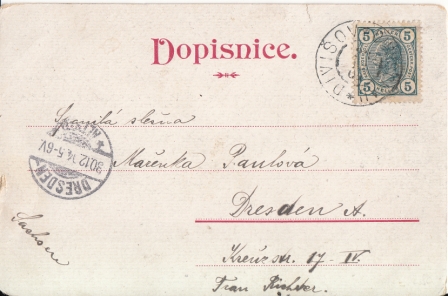 Dopisnice.
DIVIŠOV
5 5
5 5
Spanilá slečna
Mařenka Paulová
DRESDEN
30.12. 5-6V.
Dresden A.
Kreuzstr. 17 - IV.
Frau Richter.
Sachsen